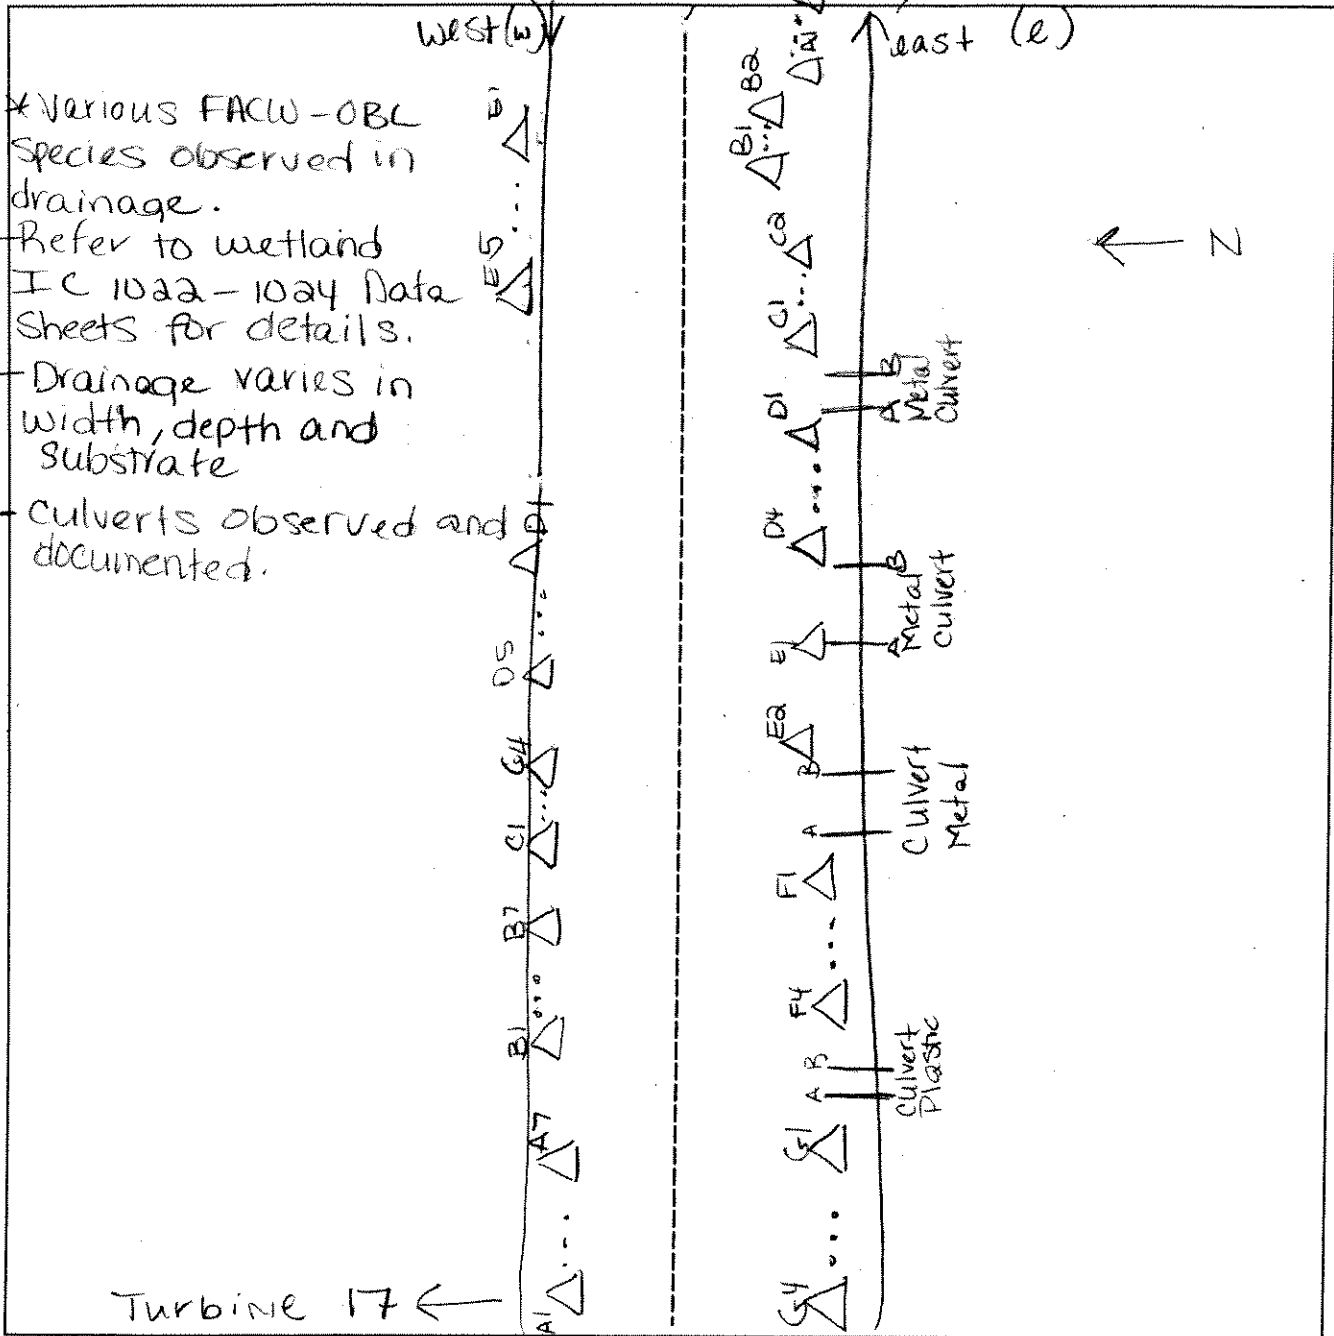 west (w)
east (e)
*Various FACW-OBL
species observed in
drainage.
- Refer to wetland
IC 1022-1024 Data
Sheets for details.
- Drainage varies in
width, depth and
substrate
- Culverts observed and
documented.
E1
E5
D1
D5
C4
C1
B7
B1
A7
A1
Turbine 17
A1
B2
B1
C2
C1
B
A
Metal
Culvert
D1
D4
B
A
Metal
Culvert
E1
E2
B
A
Culvert
Metal
F1
F4
B
A
Culvert
Plastic
G1
G4
N